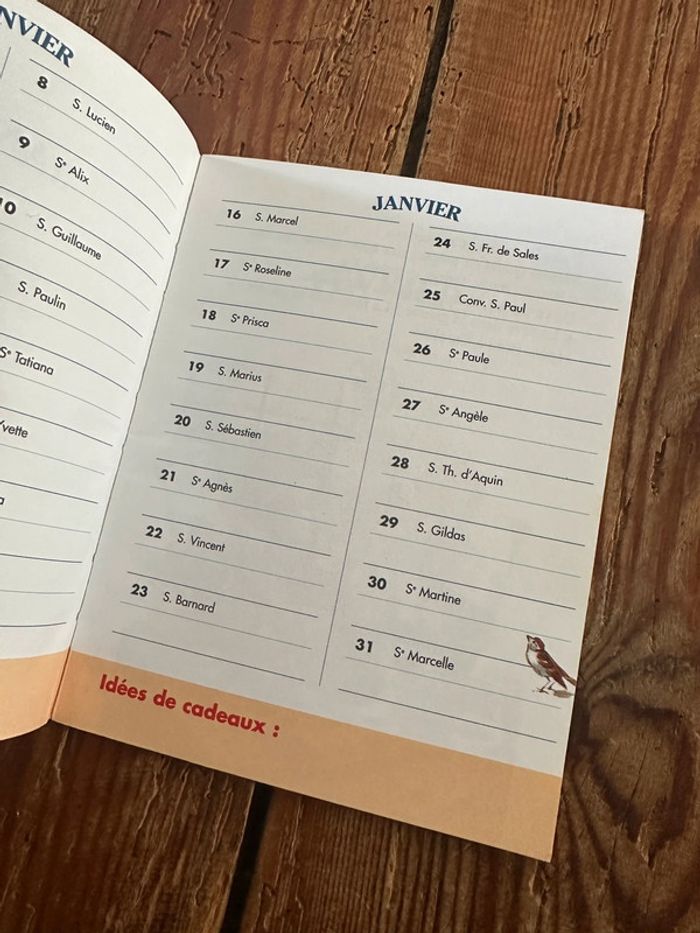 NVIER
8 S. Lucien
9 Sᵉ Alix
10 S. Guillaume
S. Paulin
Sᵉ Tatiana
Yvette
a
JANVIER
16 S. Marcel
17 Sᵉ Roseline
18 Sᵉ Prisca
19 S. Marius
20 S. Sébastien
21 Sᵉ Agnès
22 S. Vincent
23 S. Barnard
24 S. Fr. de Sales
25 Conv. S. Paul
26 Sᵉ Paule
27 Sᵉ Angèle
28 S. Th. d'Aquin
29 S. Gildas
30 Sᵉ Martine
31 Sᵉ Marcelle
Idées de cadeaux :